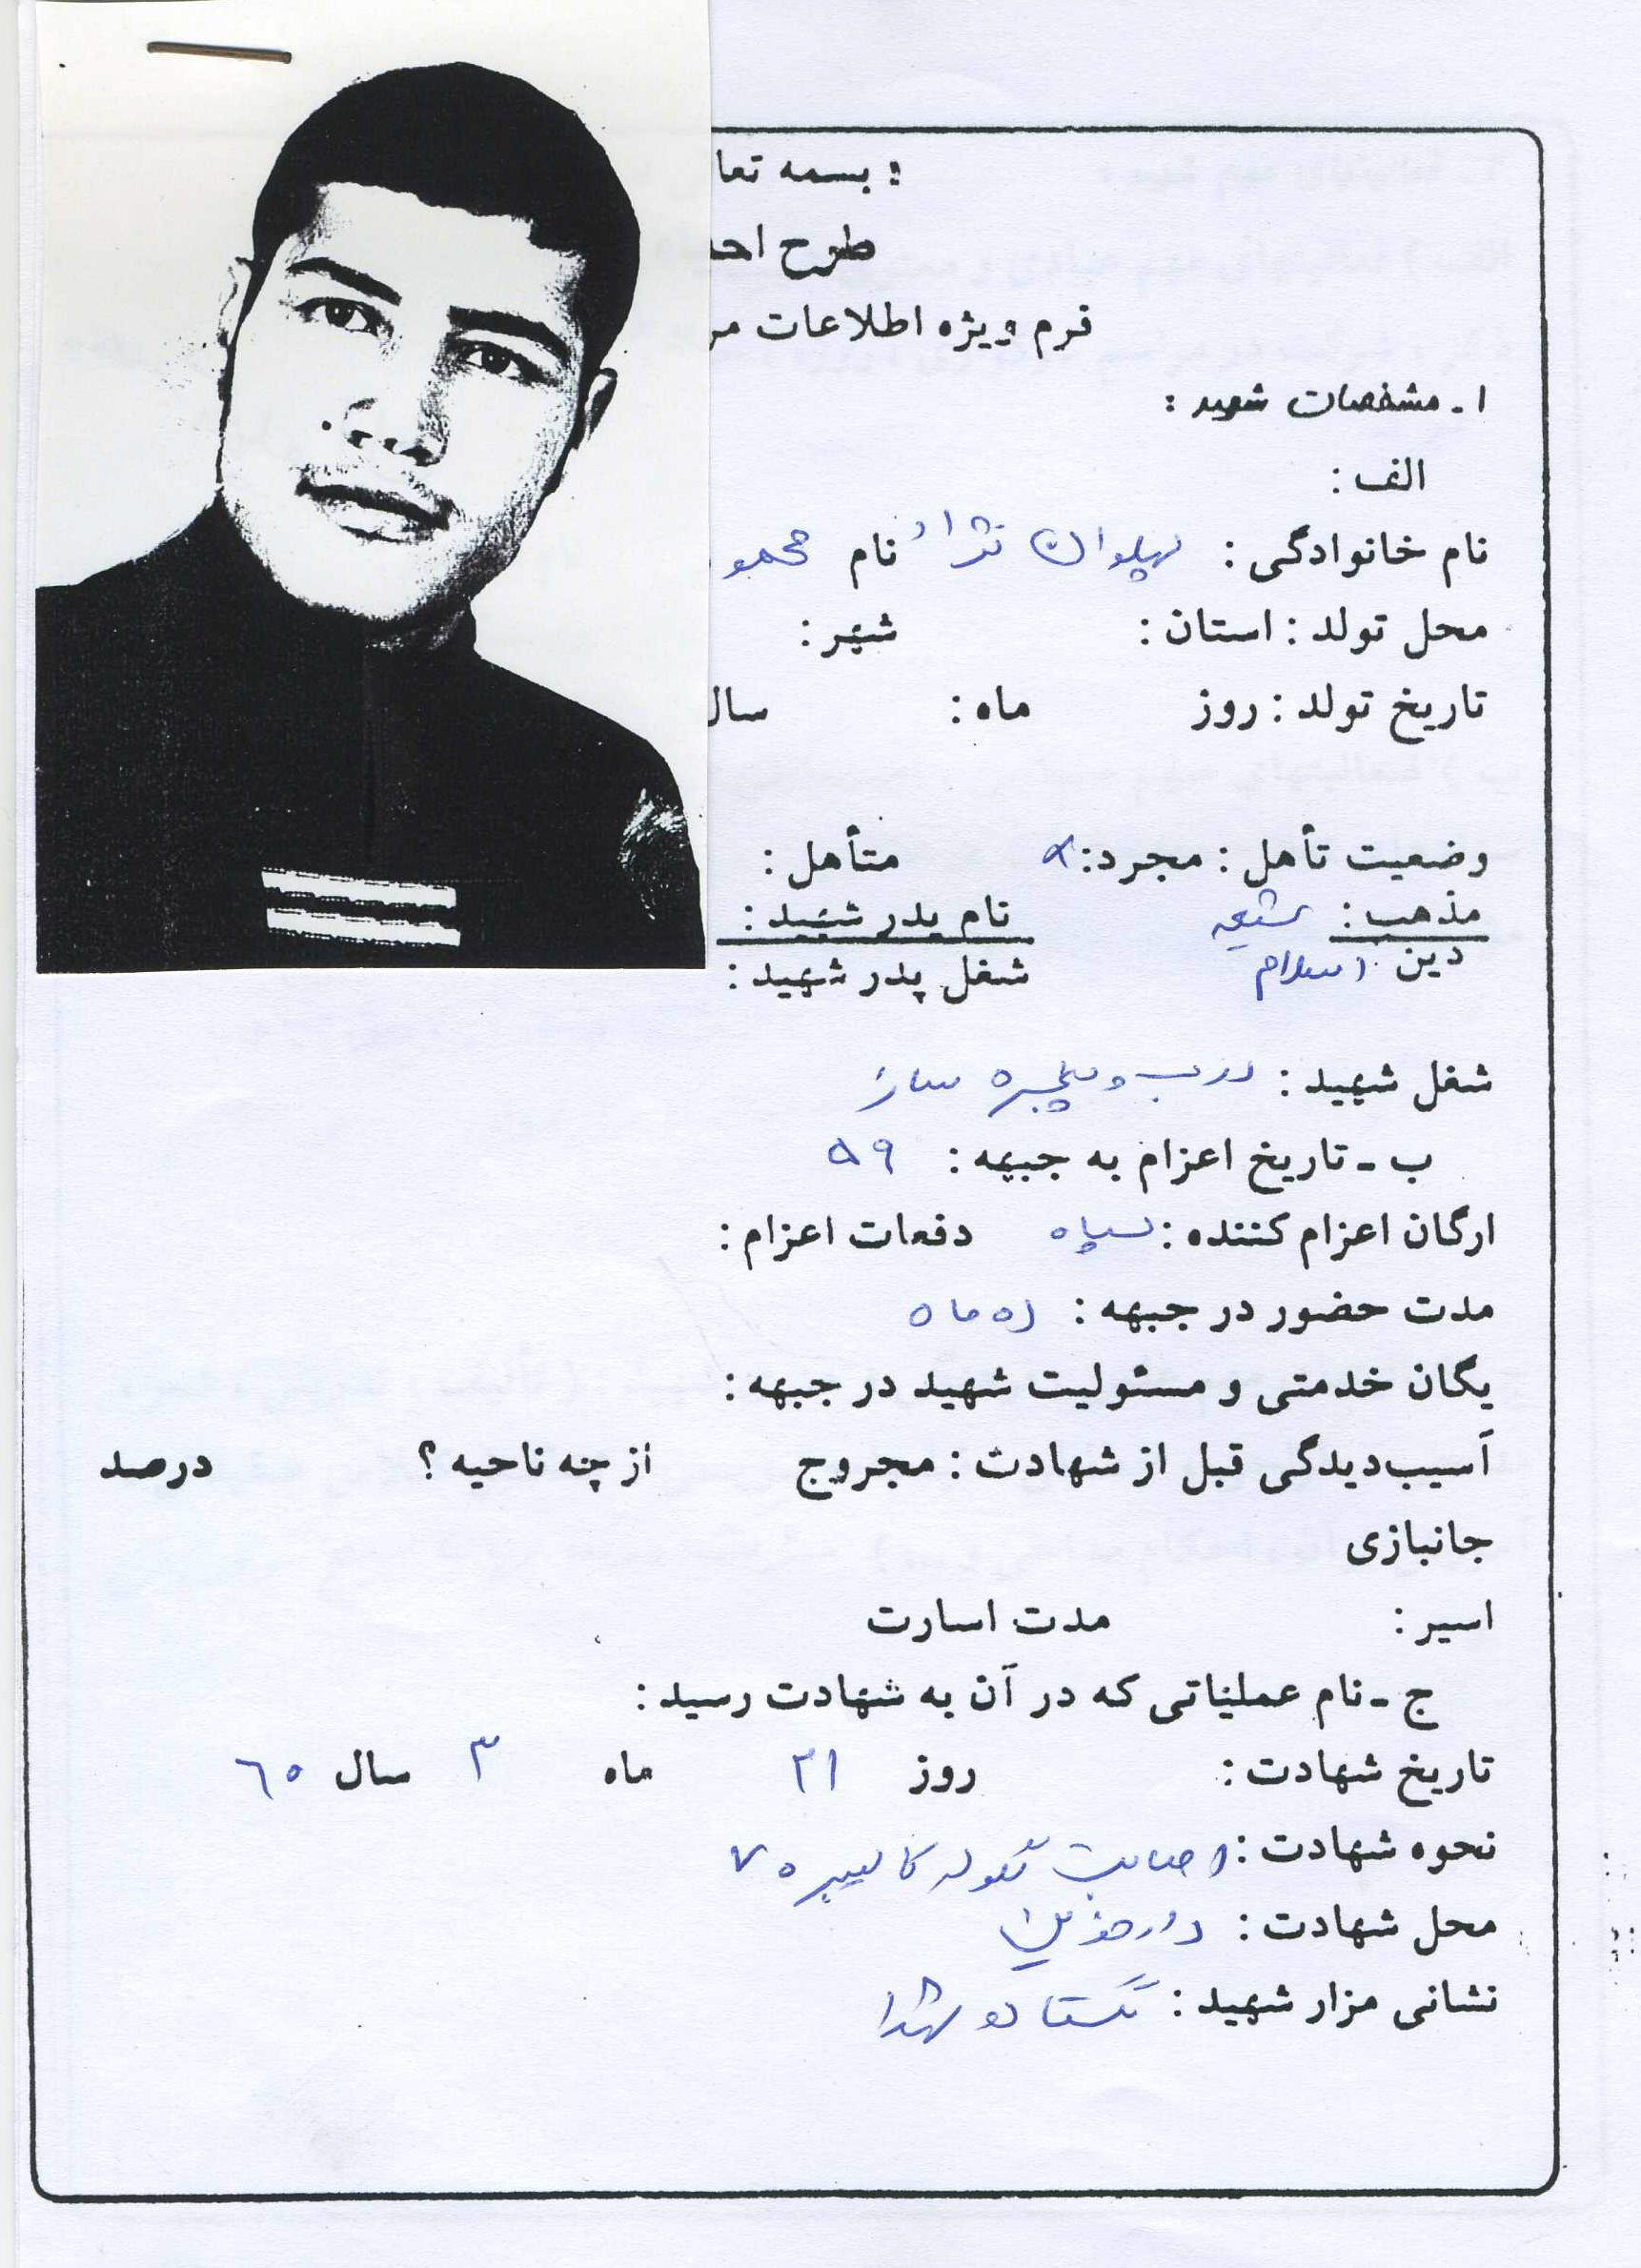 : بسمه تعا
طرح احد
فرم ویژه اطلاعات مر
۱ - مشخصات شهید :
الف :
نام خانوادگی : پهلوان نژاد نام محمو
محل تولد : استان : شهر :
تاریخ تولد : روز ماه : سال
وضعیت تأهل : مجرد : × متأهل :
مذهب : شیعه نام پدر شهید :
دین اسلام شغل پدر شهید :
شغل شهید : درب و پنجره ساز
ب - تاریخ اعزام به جبهه : ۵۹
ارگان اعزام کننده : سپاه دفعات اعزام :
مدت حضور در جبهه : ماه
یگان خدمتی و مسئولیت شهید در جبهه :
آسیب‌دیدگی قبل از شهادت : مجروح از چه ناحیه ؟ درصد
جانبازی
اسیر : مدت اسارت
ج - نام عملیاتی که در آن به شهادت رسید :
تاریخ شهادت : روز ۲۱ ماه ۳ سال ۶۰
نحوه شهادت : اصابت گلوله کالیبر ۷۵
محل شهادت : دارخوین
نشانی مزار شهید : گلستان شهدا